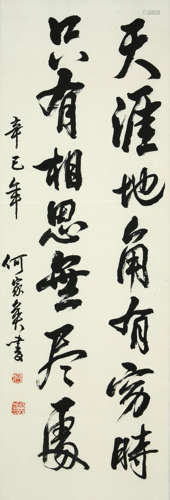 天涯地角有穷時
只有相思無尽處
辛巳年
何家英書